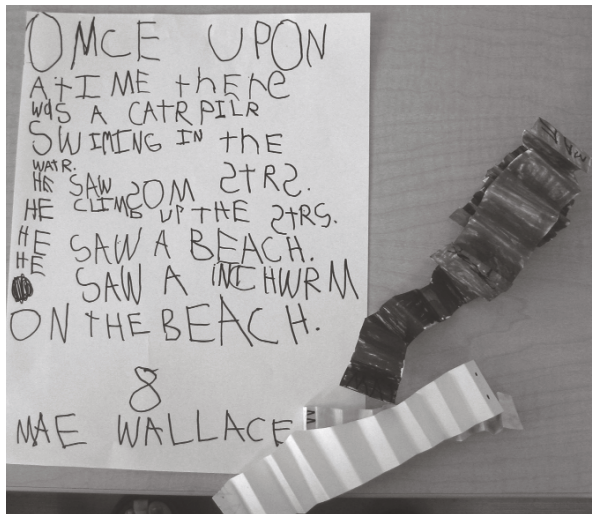 OMCE UPON
A tIME thERE
WAS A CATRPILR
SWIMING IN thE
WATR.
HE SAW SOM STRS.
HE CLIMB UP THE STRS.
HE SAW A BEACH.
HE SAW A INCHWRM
ON tHE BEACH.
8
MAE WALLACE